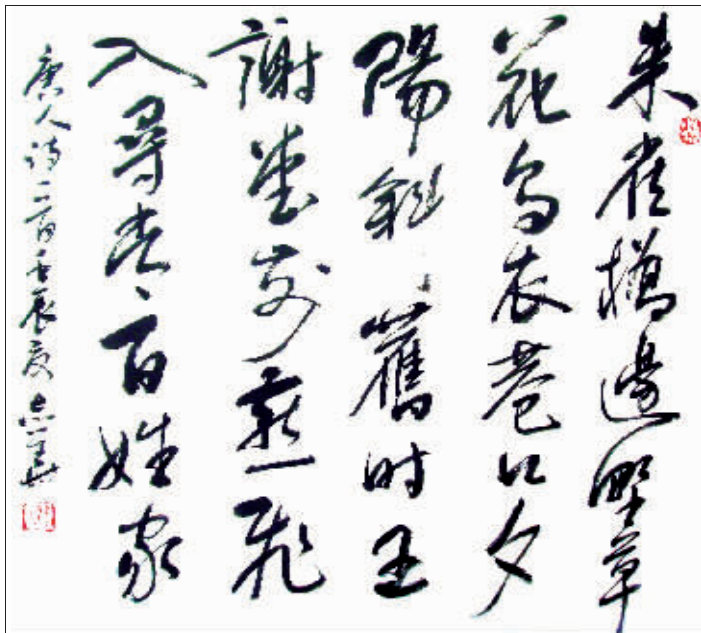 朱雀橋邊野草
花烏衣巷口夕
陽斜舊時王
謝堂前燕飛
入尋常百姓家
唐人诗一首壬辰夏